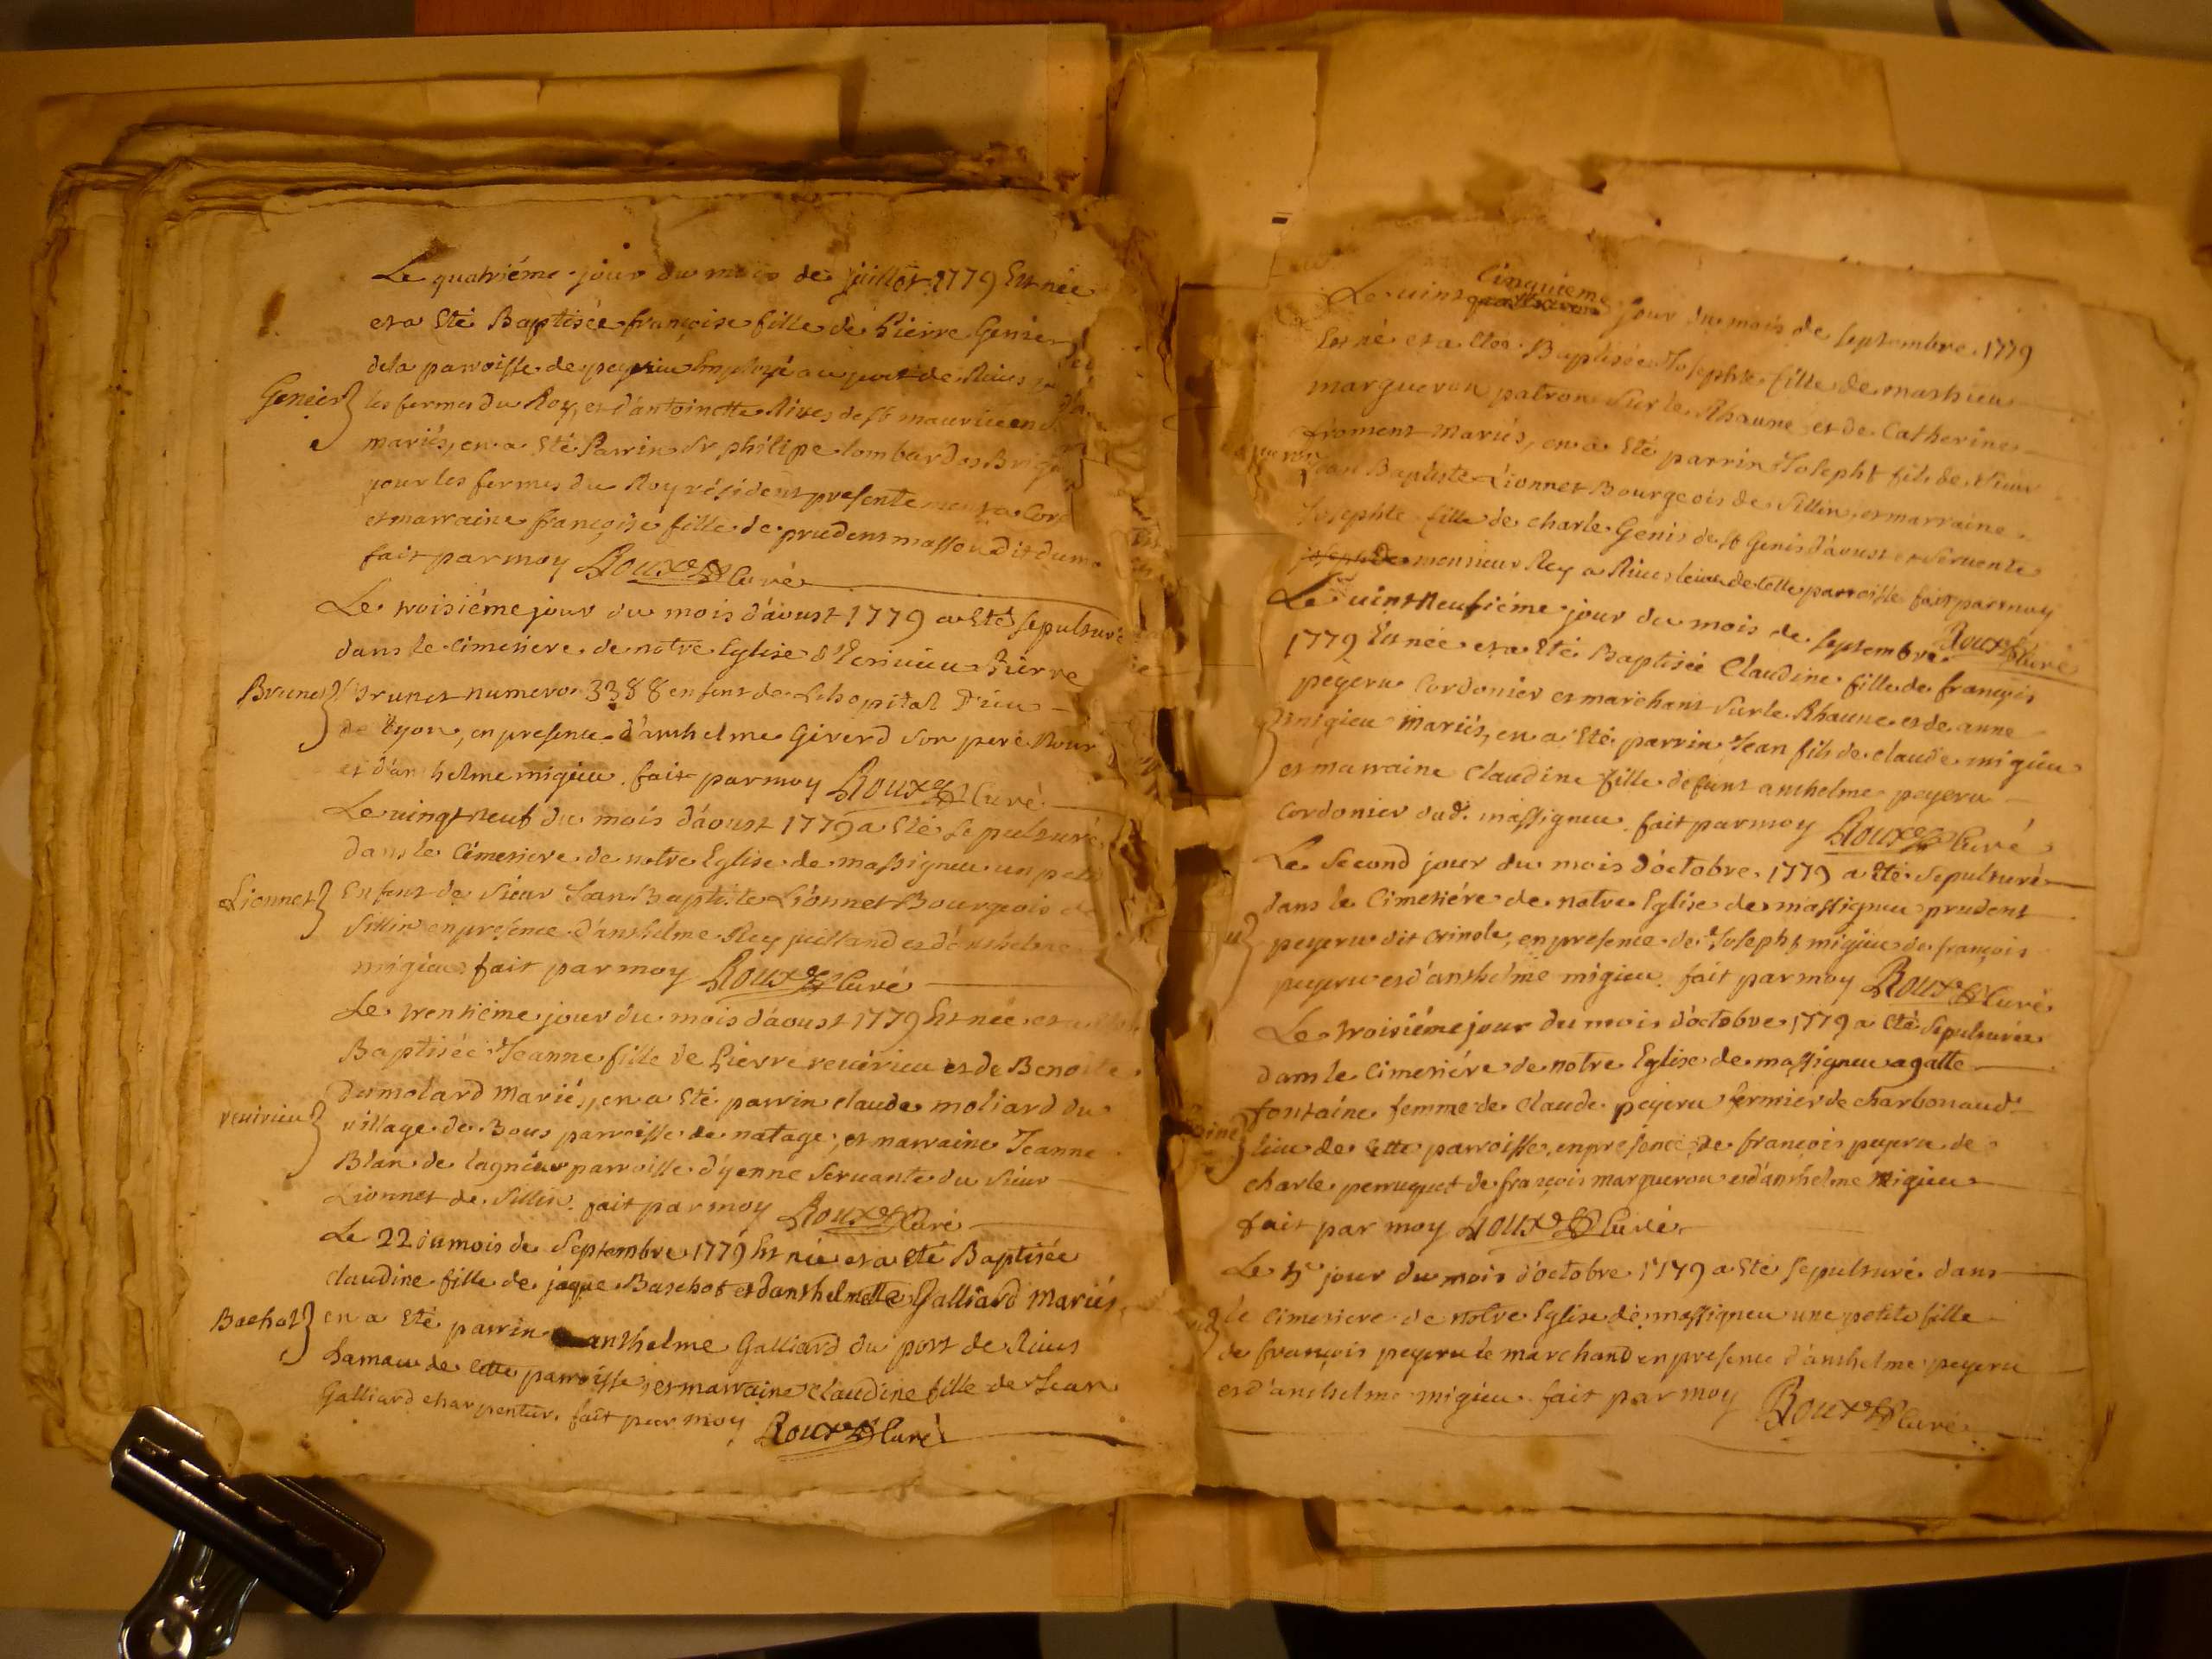 Le quatriéme jour du mois de juillet 1779 Est née
et a Eté Baptisée françoise fille de Pierre Genier
dela parroisse de peyrieu Employé au port de Rives
Genier les fermes du Roy, et d'antoinette Rives de st maurice en
mariés, en a Eté Parrin Sr philipe lombard
pour les fermes du Roy résident presentement a
et marraine françoise fille de prudent masson dit
fait par moy Roux Curé
Le troisiéme jour du mois d'áoust 1779 a Eté sepulturé
dans le cimetiere de notre Eglise d'Ecrivieu Pierre
Brunet Brunet numero 3388 enfent de Lhopital Dieu
de Lyon, en presence d'anthelme Giverd son pere Nour
et d'anthelme migieu. fait par moy Roux Curé
Le vingt neuf du mois d'áoust 1779 a Eté Sepulturé
dans le Cimetiere de notre Eglise de massigneu un petit
Lionnet Enfent de Sieur Jean Baptiste Lionnet Bourgeois de
Sillin en présence d'anthelme Rey juilland et d'anthelme
migieu fait par moy Roux Curé
Le trentiéme jour du mois d'áoust 1779 Est née et a
Baptisée Jeanne fille de Pierre revirieu et de Benoite
dumolard Mariés, en a Eté parrin claude moliard du
revirieu village de Bous parroisse de natage, et marraine Jeanne
Blan de lagnieu parroisse d'yenne Servante du Sieur
Lionnet de Sillin. fait par moy Roux Curé
Le 22 du mois de Septembre 1779 Est née et a Eté Baptisée
Claudine fille de jaque Baschot et d'anthelmette Galliard Mariés
Bachot en a Eté parrin anthelme Galliard du port de Rives
hamau de Cette parroisse, et marraine Claudine fille de Jean
Galliard charpentier. fait par moy
Roux Curé
Cinquieme
Le vint jour du mois de septembre 1779
Est né et a Etée Baptisée Josephte fille de mathieu
margueron patron Sur le Rhaune et de Catherine
froment Mariés, en a Eté parrin Joseph fils de Sieur
Jean Baptiste Lionnet Bourgeois de Sillin, et marraine
Josephte fille de charle Genis de st Genis d'áoust et Servente
monsieur Rey a Rives lieu de Cette parroisse fait par moy
Roux Curé
Le vint Neufiéme jour du mois de septembre
1779 Est née et a Eté Baptisée Claudine fille de françois
peyeru Cordonier et marchant Sur le Rhaune et de anne
migieu Mariés, en a Eté parrin Jean fils de claude migieu
et marraine Claudine fille defunt anthelme peyeru
Cordonier dud. massigneu. fait par moy Roux Curé
Le Second jour du mois d'octobre 1779 a Eté Sepulturé
dans le Cimetiére de notre Eglise de massigneu prudent
peyeru dit crinole, en presence de Joseph migieu de françois
peyeru et d'anthelme migieu. fait par moy Roux Curé
Le troisiéme jour du mois d'octobre 1779 a Eté Sepulturée
dans le Cimetiére de notre Eglise de massigneu agatte
fontaine femme de Claude peyeru fermier de charbonaud
lieu de Cette parroisse, en présence de françois peyeru de
charle perruquet de françois margueron et d'anthelme Migieu
fait par moy Roux Curé
Le 5e jour du mois d'octobre 1779 a Eté sepulturé dans
le Cimetiere de notre Eglise de massigneu une petite fille
de françois peyeru le marchand en presence d'anthelme peyeru
et d'anthelme migieu. fait par moy
Roux Curé